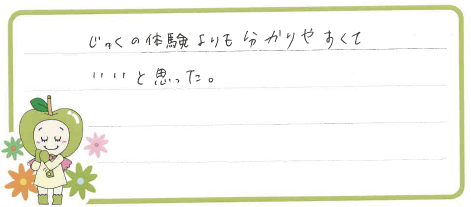 じゅくの体験よりも分かりやすくて
いいと思った。